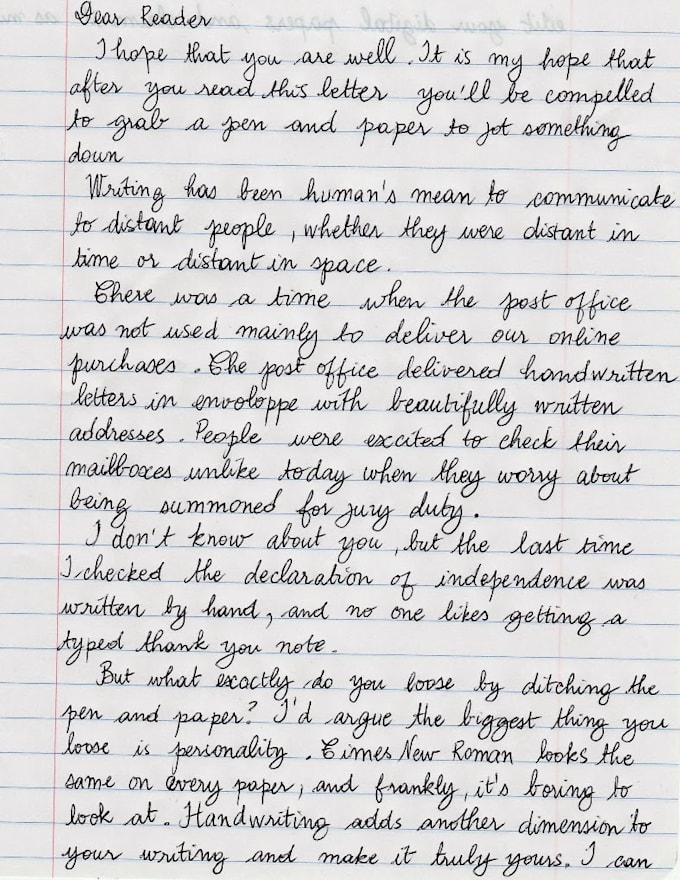 Dear Reader
I hope that you are well. It is my hope that
after you read this letter you'll be compelled
to grab a pen and paper to jot something
down
Writing has been human's mean to communicate
to distant people, whether they were distant in
time or distant in space.
There was a time when the post office
was not used mainly to deliver our online
purchases. The post office delivered handwritten
letters in enveloppe with beautifully written
addresses. People were excited to check their
mailboxes unlike today when they worry about
being summoned for jury duty.
I don't know about you, but the last time
I checked the declaration of independence was
written by hand, and no one likes getting a
typed thank you note.
But what exactly do you loose by ditching the
pen and paper? I'd argue the biggest thing you
loose is personality. Times New Roman looks the
same on every paper, and frankly, it's boring to
look at. Handwriting adds another dimension to
your writing and make it truly yours. I can